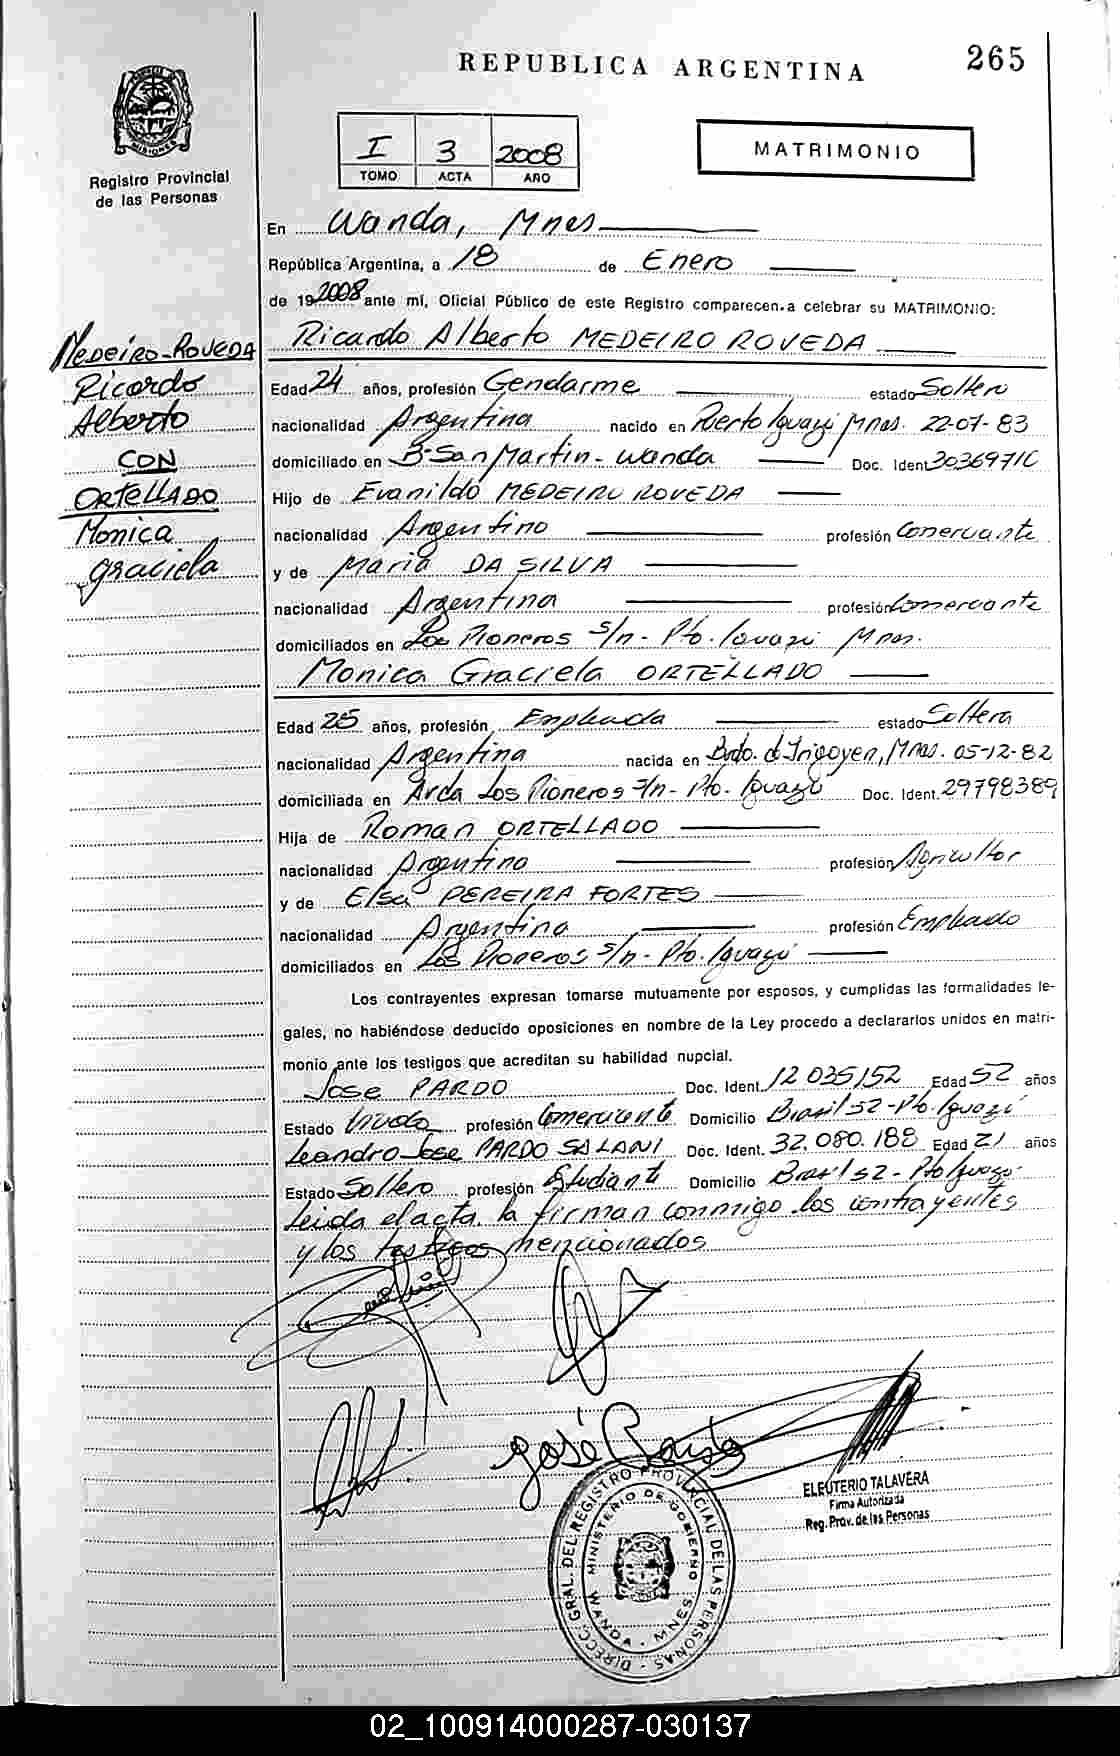 REPUBLICA ARGENTINA
265
MISIONES
Registro Provincial
de las Personas
I 3 2008
TOMO ACTA AÑO
MATRIMONIO
En Wanda, Mnes
República Argentina, a 18 de Enero
de 192008 ante mí, Oficial Público de este Registro comparecen a celebrar su MATRIMONIO:
Ricardo Alberto MEDEIRO ROVEDA
MEDEIRO-ROVEDA
Ricardo
Alberto
CON
ORTELLADO
Monica
graciela
Edad 24 años, profesión Gendarme estado Soltero
nacionalidad Argentina nacido en Puerto Iguazú Mnes. 22-07-83
domiciliado en B-San Martin-Wanda Doc. Ident.
Hijo de Evanildo MEDEIRO ROVEDA
nacionalidad Argentino profesión Comerciante
y de Maria DA SILVA
nacionalidad Argentina profesión Comerciante
domiciliados en Los Pioneros s/n-Pto. Iguazú Mnes.
Monica Graciela ORTELLADO
Edad 25 años, profesión Empleada estado Soltera
nacionalidad Argentina nacida en Bdo. de Irigoyen, Mnes. 05-12-82
domiciliada en Avda Los Pioneros s/n-Pto. Iguazú Doc. Ident. 29798389
Hija de Roman ORTELLADO
nacionalidad Argentino profesión Agricultor
y de Elsa PEREIRA FORTES
nacionalidad Argentina profesión Empleado
domiciliados en Los Pioneros s/n-Pto. Iguazú
Los contrayentes expresan tomarse mutuamente por esposos, y cumplidas las formalidades le-
gales, no habiéndose deducido oposiciones en nombre de la Ley procedo a declararlos unidos en matri-
monio ante los testigos que acreditan su habilidad nupcial.
Jose PARDO Doc. Ident. 12 035152 Edad 52 años
Estado Viudo profesión Comerciante Domicilio Brasil 52-Pto. Iguazú
Leandro Jose PARDO SALANI Doc. Ident. 32.080.188 Edad 21 años
Estado Soltero profesión Estudiante Domicilio Brasil 52-Pto Iguazú
Leida el acta, la firman conmigo los contrayentes
y los testigos mencionados
José Pardo
ELEUTERIO TALAVERA
Firma Autorizada
Reg. Prov. de las Personas
DIRECC. GRAL. DEL REGISTRO PROVINCIAL DE LAS PERSONAS
MINISTERIO DE GOBIERNO
WANDA - MNES
02_100914000287-030137